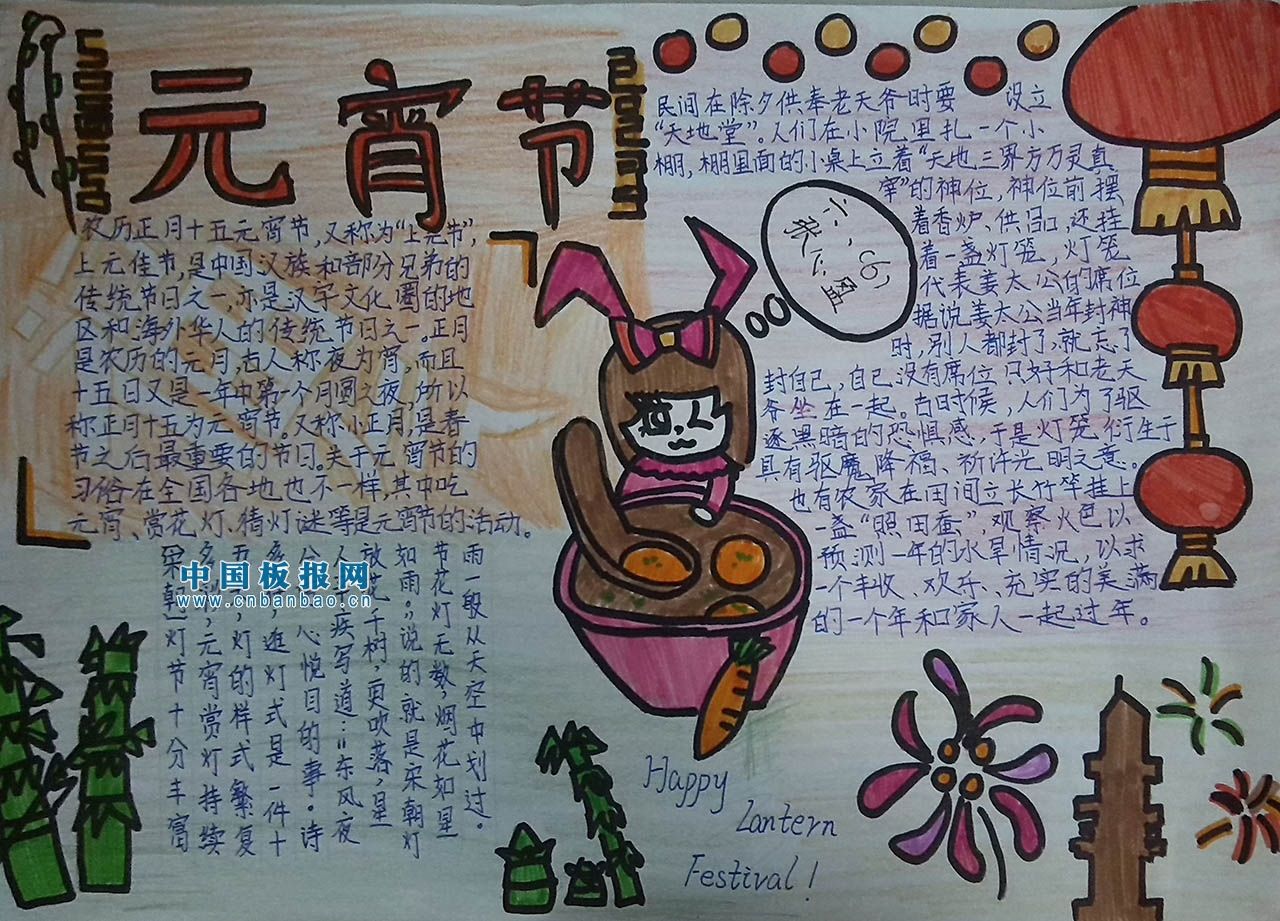 元宵节
农历正月十五元宵节,又称为“上元节”,
上元佳节,是中国汉族和部分兄弟的
传统节日之一,亦是汉字文化圈的地
区和海外华人的传统节日之一。正月
是农历的元月,古人称夜为宵,而且
十五日又是一年中第一个月圆之夜,所以
称正月十五为元宵节。又称小正月,是春
节之后最重要的节日。关于元宵节的
习俗在全国各地也不一样,其中吃
元宵、赏花灯、猜灯谜等是元宵节的活动。
宋朝灯节十分丰富
多,元宵赏灯持续
五,灯的样式繁复
多,逛灯式是一件十
分心悦目的事。诗
人疾写道:“东风夜
放千树,更吹落,星
如雨。”说的就是宋朝灯
节花灯无数,烟花如星
雨一般从天空中划过。
中国板报网
www.cnbanbao.cn
民间在除夕供奉老天爷时要 设立
“天地堂”。人们在小院里扎一个小
棚,棚里面的小桌上立着“天地三界方万灵真
宰”的神位,神位前摆
着香炉、供品,还挂
着一盏灯笼,灯笼
代表姜太公的席位
据说姜太公当年封神
时,别人都封了,就忘了
封自己,自己没有席位,只好和老天
爷坐在一起。古时候,人们为了驱
逐黑暗的恐惧感,于是灯笼衍生于
具有驱魔降福、祈许光明之意。
也有农家在田间立长竹竿挂上
一盏“照田蚕”,观察火色以
预测一年的水旱情况,以求
一个丰收、欢乐、充实的美满
的一个年和家人一起过年。
张心盈
Happy
Lantern
Festival!